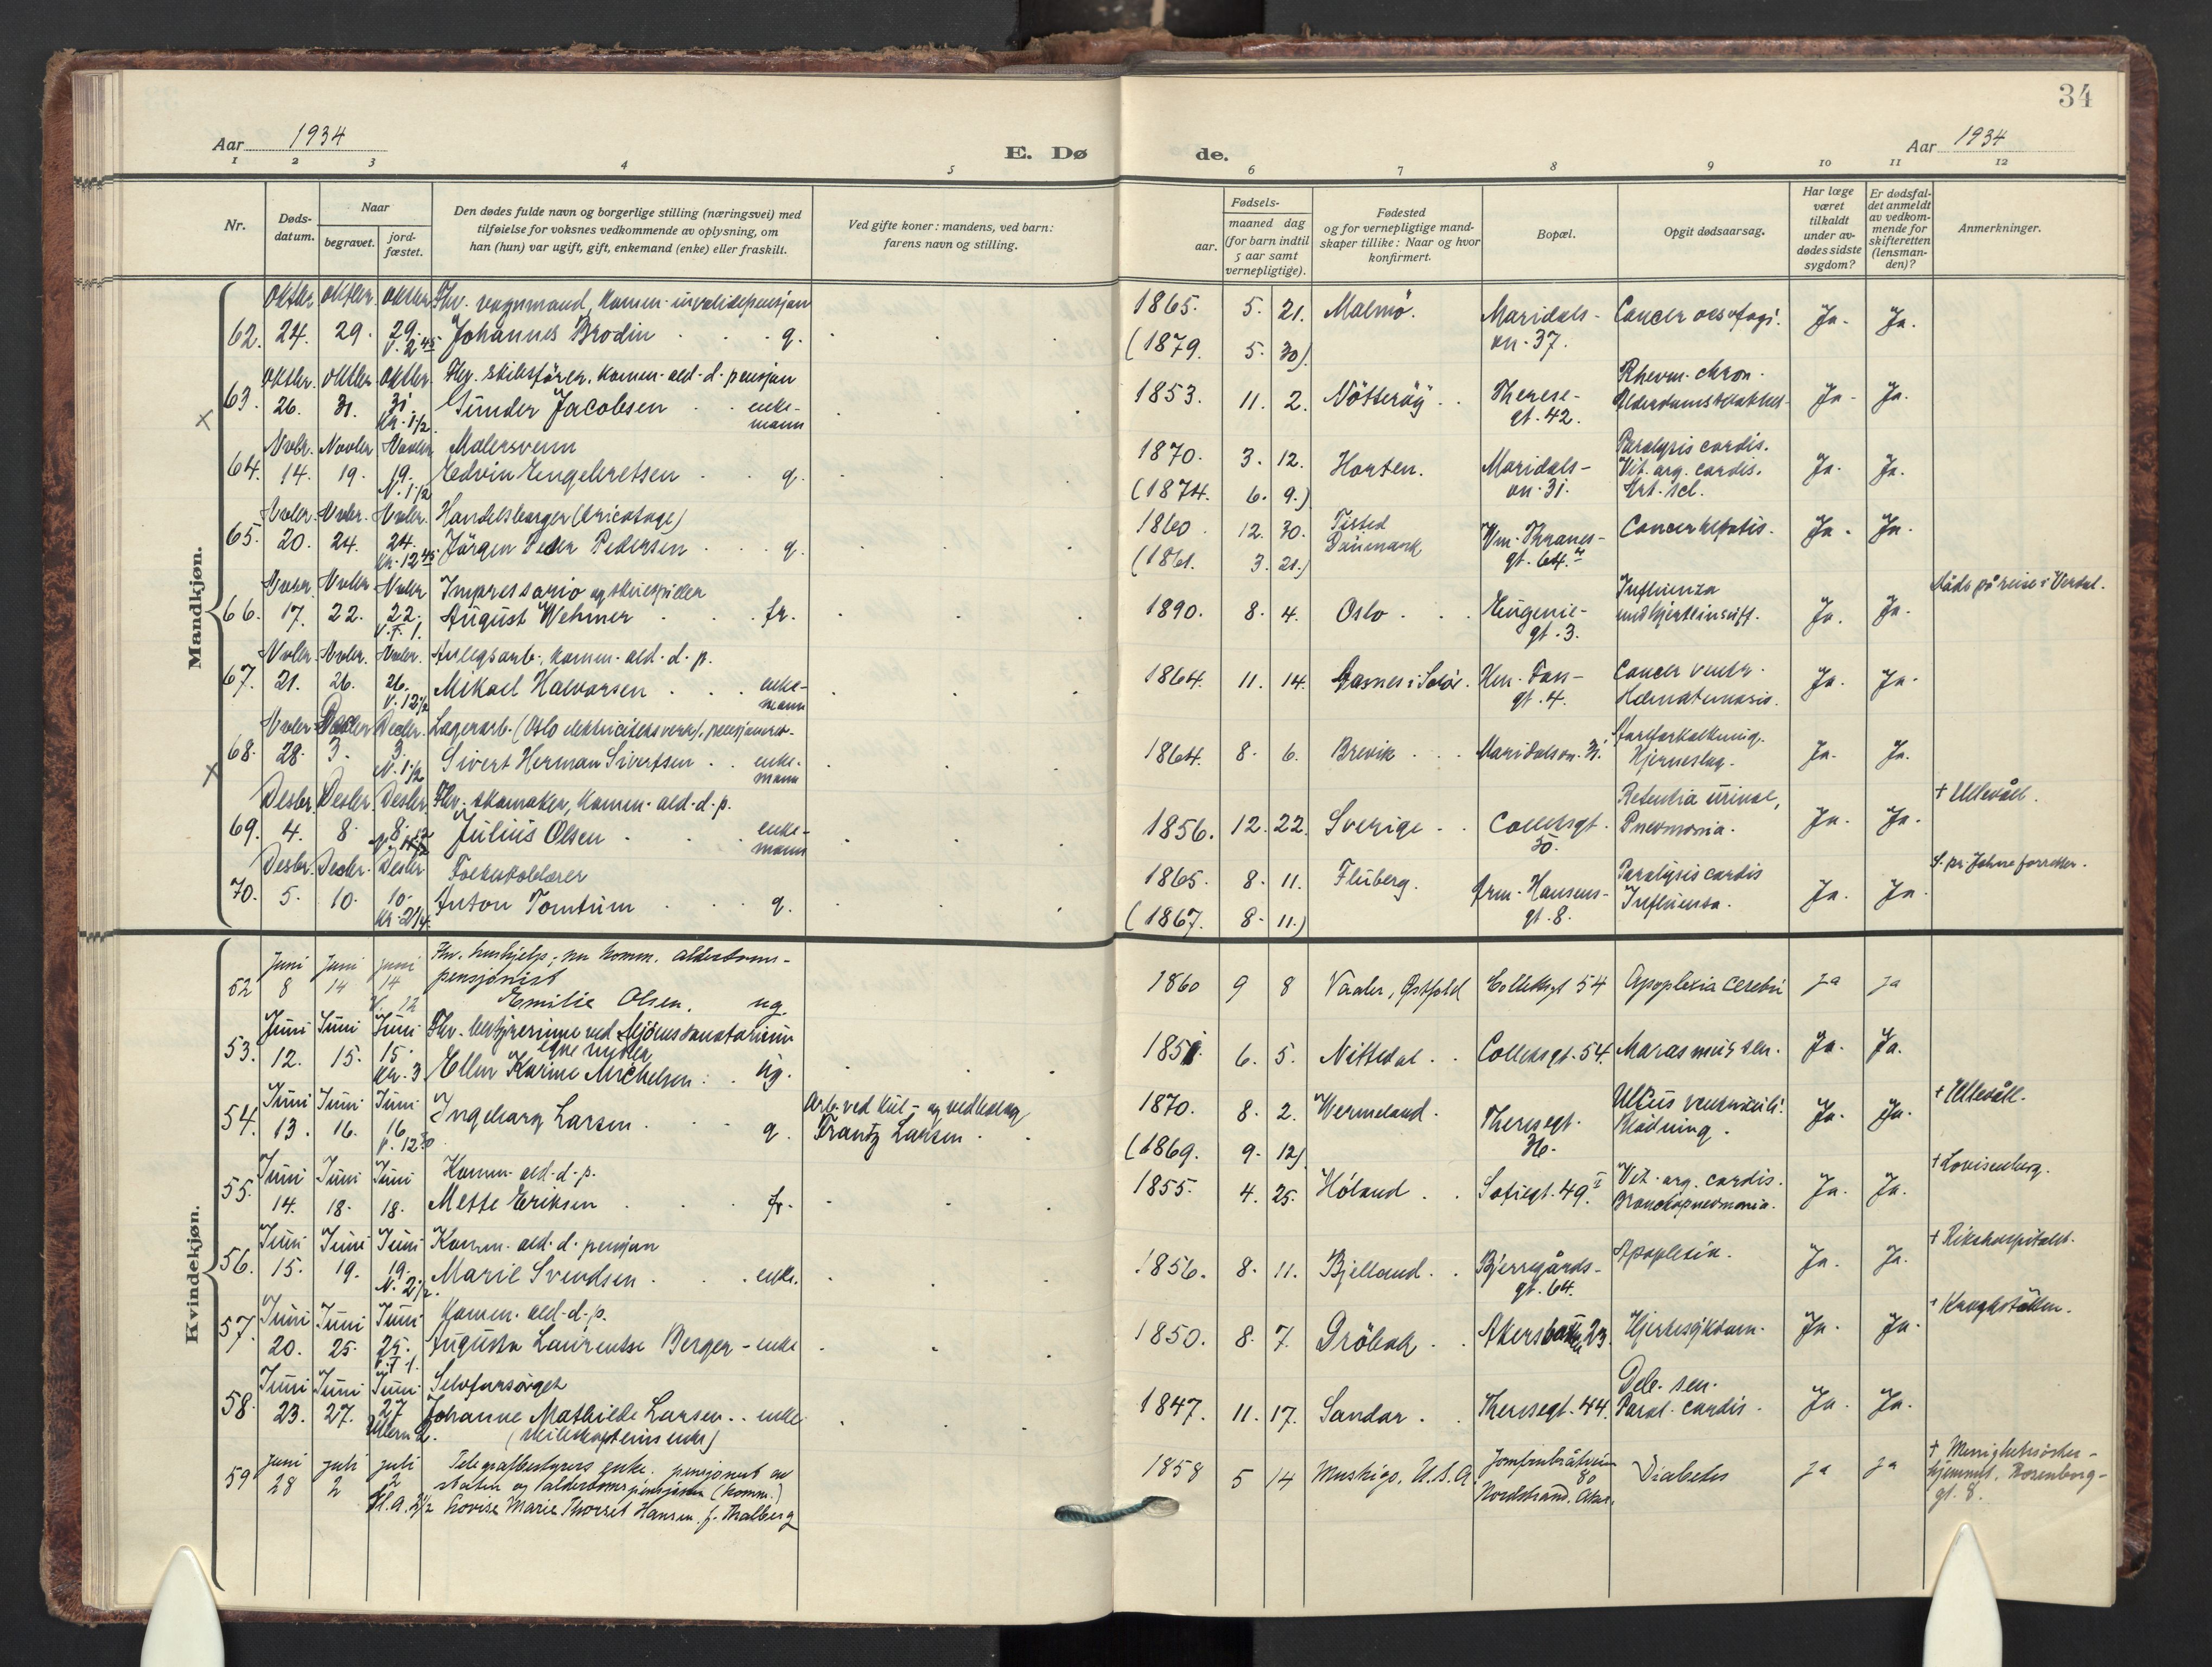 34
Aar 1934
E. Dø
de.
Aar 1934
1 2 3 4 5 6 7 8 9 10 11 12
Nr.
Døds-
datum.
Naar
begravet.
jord-
fæstet.
Den dødes fulde navn og borgerlige stilling (næringsvei) med
tilføielse for voksnes vedkommende av oplysning, om
han (hun) var ugift, gift, enkemand (enke) eller fraskilt.
Ved gifte koner: mandens, ved barn:
farens navn og stilling.
Fødsels-
aar.
maaned dag
(for barn indtil
5 aar samt
vernepligtige).
Fødested
og for vernepligtige mand-
skaper tillike: Naar og hvor
konfirmert.
Bopæl.
Opgit dødsaarsag.
Har læge
været
tilkaldt
under av-
dødes sidste
sygdom?
Er dødsfal-
det anmeldt
av vedkom-
mende for
skifteretten
(lensman-
den)?
Anmerkninger.
Mandkjøn.
Oktbr. Oktbr. Oktbr. Fhv. vognmand, komm. invalidepensjon
62. 24. 29. 29. Johannes Brodin g. 1865. 5. 21. Malmö. Maridals- Cancer oesofagi. Ja. Ja.
V. 2 45 (1879. 5. 30) vn. 37.
Oktbr. Oktbr. Oktbr. Fhv. skibsfører, komm. ald. d. pensjon
63. 26. 31. 31. Gunder Jacobsen enke- 1853. 11. 2. Nötteröy. Therese- Rheum. chron. Ja. Ja.
Kr. 1 1/2 mann gt. 42.
Novbr. Novbr. Novbr. Malersvenn
64. 14. 19. 19. Edvin Engebretsen g. 1870. 3. 12. Horten. Maridals- Paralysis cordis. Ja. Ja.
N. 1 1/2 (1874. 6. 9.) vn. 31. Vit. org. cordis.
Art. scl.
Novbr. Novbr. Novbr. Handelsborger (tricotage)
65. 20. 24. 24. Jörgen Peder Pedersen g. 1860. 12. 30. Tisted Vm. Thranes- Cancer hepatis. Ja. Ja.
Kr. 12 45 (1861. 3. 21.) Danmark gt. 64.
Novbr. Novbr. Novbr. Impressario og skuespiller
66. 17. 22. 22. August Wehmer fr. 1890. 8. 4. Oslo Eugenie- Influenza Ja. Ja. Döde på reise i Verdal.
V.F. 1. gt. 3. med hjerteinsuff.
Novbr. Novbr. Novbr. Anlegsarb., komm. ald. d. p.
67. 21. 26. 26. Mikael Halvorsen enke- 1864. 11. 14. Aasnes i Solör. Cancer ventr. Ja. Ja.
V. 12 1/2 mann gt. 4. Hæmatemesis.
Novbr. Decbr. Decbr. Lagerarb. (Oslo elektricitetsverk), pensjonert
68. 28. 3. 3. Sivert Herman Sivertsen enke- 1864. 8. 6. Brevik Maridalsvn. 31. Åreforkalkning. Ja. Ja.
N. 1 1/2 mann Hjerneslag.
Desbr. Desbr. Desbr. Fhv. skomaker, komm. ald. d. p.
69. 4. 8. 8. Julius Olsen enke- 1856. 12. 22. Sverige Colletsgt. Retentia urinae, Ja. Ja. + Ullevål.
mann 30. Pneumonia.
Desbr. Decbr. Desbr. Folkeskolelærer
70. 5. 10. 10. Anton Tomtum g. 1865. 8. 11. Fluberg. Arm. Hansens- Paralysis cordis Ja. Ja.
Kr. 2 1/4. (1867. 8. 11.) gt. 8. Influensa.
Kvindekjøn.
Juni Juni Juni Fhv. hushjelp, nu komm. alderdoms-
52 8 14 14 pensjonist
V. 12 Emilie Olsen. ug. 1860 9 8 Vaaler, Østfold Colletsgt 54 Apoplexia cerebri ja ja
Juni Juni Juni Fhv. bestyrerinne ved Mjösensanatorium
53. 12. 15. 15. egne midler
Kr. 3 Ellen Karine Michelsen ug. 1851. 6. 5. Nittedal Colletsgt. 54. Marasmus sen. Ja. Ja.
Juni Juni Juni Arb. ved kul- og vedhandel
54. 13. 16. 16 Ingeborg Larsen g. Frantz Larsen 1870. 8. 2. Wermeland. Theresegt. Ulcus ventriculi. Ja. Ja. + Ullevåll.
V. 12 30 (1869. 9. 12) 36. Blödning.
Juni Juni Juni Komm. ald. d. p.
55. 14. 18. 18. Mette Eriksen fr. 1855. 4. 25. Höland Sofiegt. 49. Vit. org. cordis. Ja. Ja. + Lovisenberg.
Bronchopneumonia.
Juni Juni Juni Komm. ald. d. pensjon
56. 15. 19. 19. Marie Svendsen enke. 1856. 8. 11. Bjelland Bjerregårds- Apoplexia. Ja. Ja. + Rikshospitalet.
N. 2 1/2. gt. 64.
Juni Juni Juni Komm. ald. d. p.
57. 20. 25. 25. Augusta Laurentse Berger - enke 1850. 8. 7. Dröbak Akersbakken 23. Hjertesykdom. Ja. Ja. + Kroghstötten.
V.F. 1.
Juni Juni Juni Selvforsörget
58. 23. 27. 27 Johanne Mathilde Larsen enke 1847. 11. 17. Sandar. Theresegt. 44. Deb. sen. Ja. Ja.
Ullern 2. (skibskapteins enke) Paral. cordis.
Juni Juli Juli Telegrafbestyrers enke, pensjonert av
59 28 2 2 staten og alderdomspensjon (komm.)
H.A. 2 1/2 Lovise Marie Thorset Hansen f. Thalberg 1858 5 14 Muskigo, U.S.A. Jomfrubråtveien Diabetes ja ja + Menighetssöster-
80 hjemmet, Rosenborg-
Nordstrand, Aker. gt. 8.